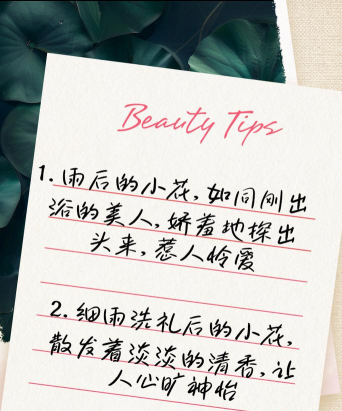 Beauty Tips
1. 雨后的小花，如同刚出
浴的美人，娇羞地探出
头来，惹人怜爱
2. 细雨洗礼后的小花，
散发着淡淡的清香，让
人心旷神怡